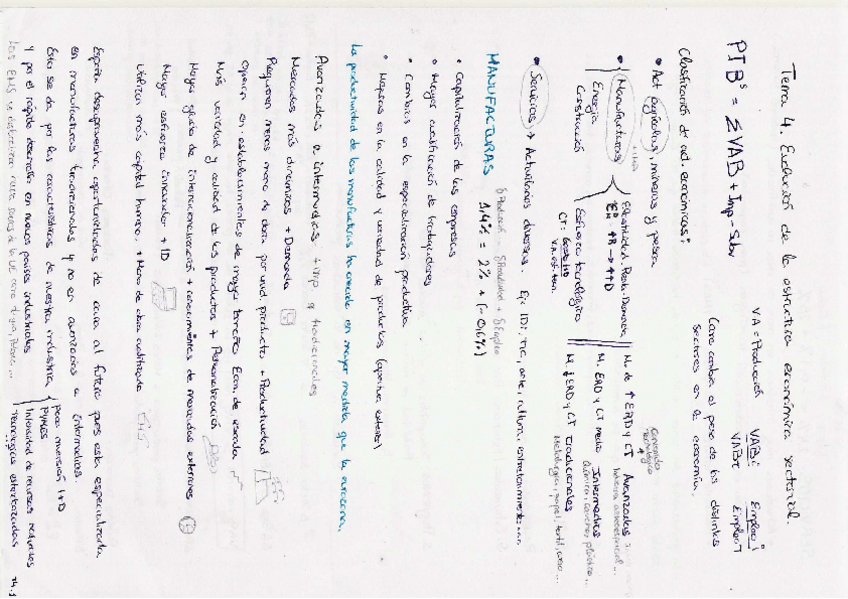 Tema 4. Evolución de la estructura económica sectorial
PIBs = ΣVAB + Imp - Subv
VA = Producción
VABi
VABT
Empleo i
Empleo T
Como cambia el peso de los distintos
sectores en la economía.
Clasificación de act. económicas:
• Act agrícolas, mineras y pesca
• Manufacturas
Energía
Construcción
Elasticidad Renta-Demanda
↑R → ↑↑D
Esfuerzo tecnológico
CT: Gasto I+D
M. de ↑ ERD y CT Avanzadas
Contenido tecnológico
M. ERD y CT media Intermedias
M. ↓ ERD y CT tradicionales
Metalurgia, papel, textil
• Servicios → Actividades diversas. Ej: IDi, TIC, arte, cultura, entretenimiento...
MANUFACTURAS
δ Producción = δ Productividad + δ Empleo
1,4% = 2% + (-0,6%)
• Capitalización de las empresas
• Mayor cualificación de trabajadores
• Cambios en la especialización productiva
• Mejoras en la calidad y variedad de productos (apertura exterior)
La productividad de las manufacturas ha crecido en mayor medida que la eurozona.
Avanzadas e intermedias, + imp a tradicionales
Mercados más dinámicos + Demanda
Requieren menos mano de obra por unid. producto + Productividad
Operan en establecimientos de mayor tamaño Econ de escala
Más variedad y calidad de los productos + Personalización
Mayor grado de internacionalización + conocimientos de mercados exteriores
Mayor esfuerzo innovador + ID
Utilizan más capital humano, + Mano de obra cualificada
España desaprovecha oportunidades de cara al futuro pues está especializada
en manufacturas tradicionales y no en avanzadas e intermedias.
Esto se da por las características de nuestra industria
Poca inversión I+D
PYMES
Intensidad de recursos naturales
Tecnologías estandarizadas
Y por el rápido desarrollo en nuevos países industriales